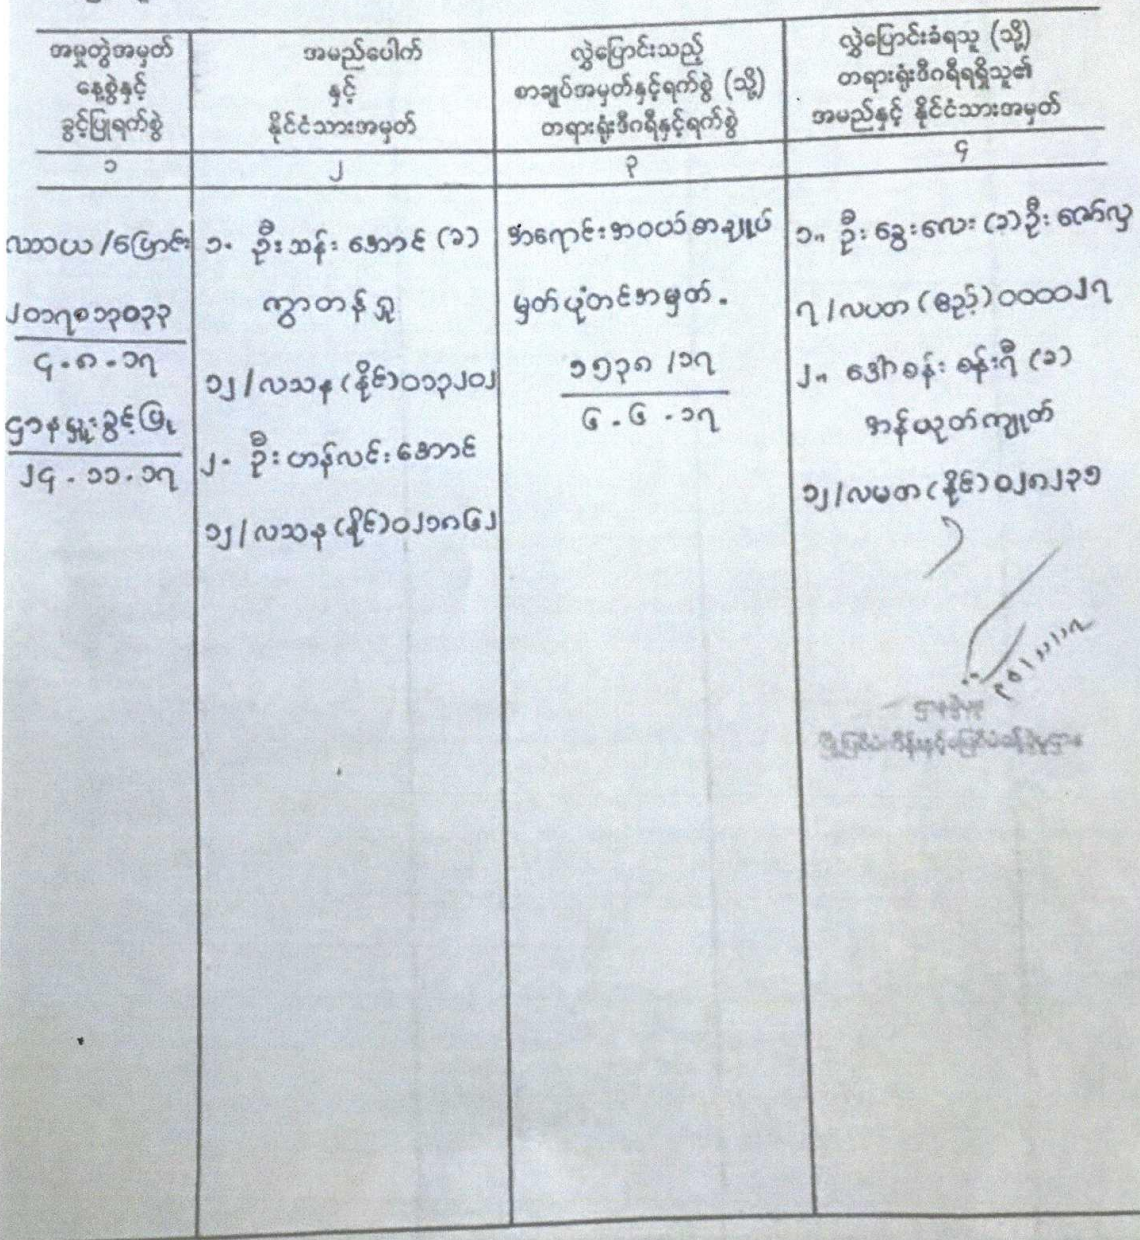 အမှုတွဲအမှတ်
နေ့စွဲနှင့်
ခွင့်ပြုရက်စွဲ
အမည်ပေါက်
နှင့်
နိုင်ငံသားအမှတ်
လွှဲပြောင်းသည့်
စာချုပ်အမှတ်နှင့်ရက်စွဲ (သို့)
တရားရုံးဒီဂရီနှင့်ရက်စွဲ
လွှဲပြောင်းခံရသူ (သို့)
တရားရုံးဒီဂရီရရှိသူ၏
အမည်နှင့် နိုင်ငံသားအမှတ်
၁
၂
၃
၄
/ပြောင်း
၂၀၁၇၈၁၃၀၃၃
၄.၈.၁၇
ဌာနမှူးခွင့်ပြု
၂၄.၁၁.၁၇
၁. ဦးသန်းအောင် (ခ)
ကွာတန်ရှု
၁၂/လသန(နိုင်)၀၁၃၂၀၂
၂. ဦးဟန်လင်းအောင်
၁၂/လသန(နိုင်)၀၂၁၈၆၂
အရောင်းအဝယ်စာချုပ်
မှတ်ပုံတင်အမှတ်.
၁၅၃၈/၁၇
၆.၆.၁၇
၁။ ဦးခွေးလေး(ခ)ဦးဇော်လှ
၇/လပတ(ဧည့်)၀၀၀၀၂၇
၂။ ဒေါ်စန်းစန်းရီ(ခ)
အန်ယုတ်ကျုတ်
၁၂/လမတ(နိုင်)၀၂၈၂၃၅